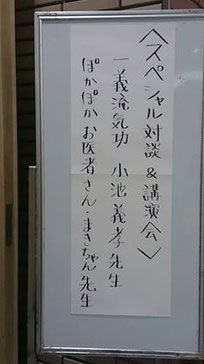 〈スペシャル対談&講演会〉
一義流気功 小池義孝先生
ぽかぽかお医者さん・まきちゃん先生